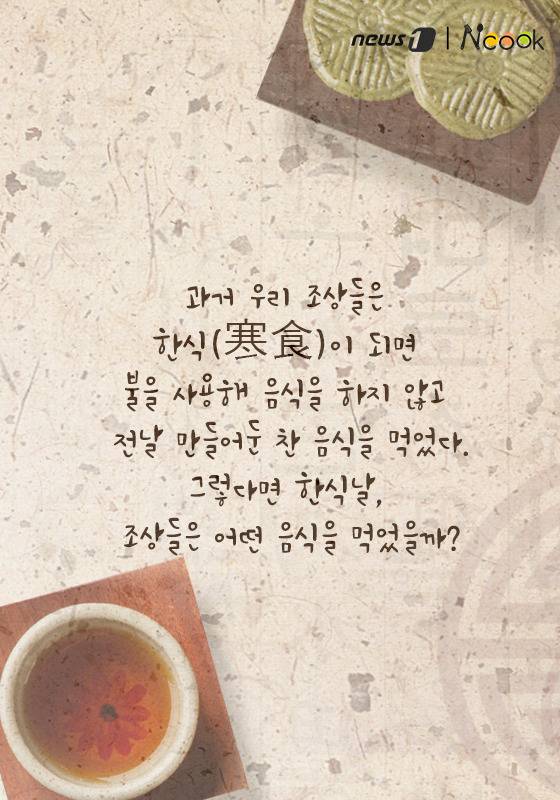 news1 | Ncook
과거 우리 조상들은
한식(寒食)이 되면
불을 사용해 음식을 하지 않고
전날 만들어둔 찬 음식을 먹었다.
그렇다면 한식날,
조상들은 어떤 음식을 먹었을까?